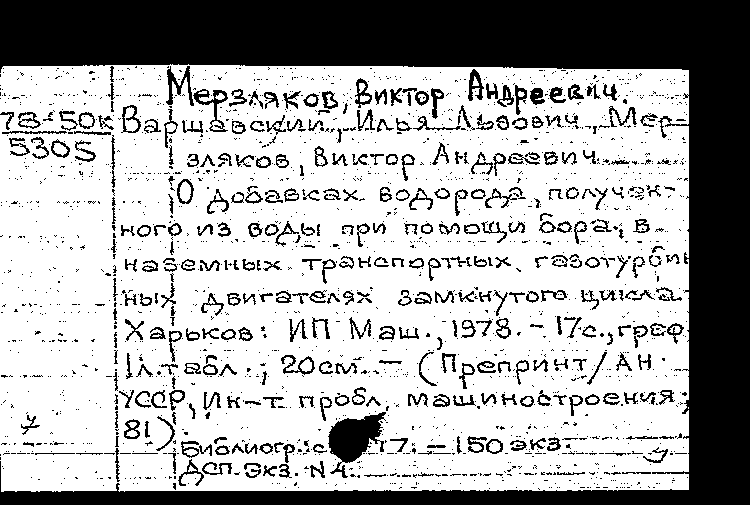 Мерзляков, Виктор Андреевич.
78-50к Варшавский, Илья Львович, Мер-
5305
зляков, Виктор Андреевич
О добавках водорода, получен-
ного из воды при помощи бора, в
наземных транспортных газотурбин
ных двигателях замкнутого цикла.
Харьков: ИП Маш., 1978. - 17с., граф
1л.табл.; 20см. — (Препринт/АН
УССР, Ин-т пробл. машиностроения;
81).
Библиогр.: с 17. - 150 экз.
ДСП. Экз. N 4.